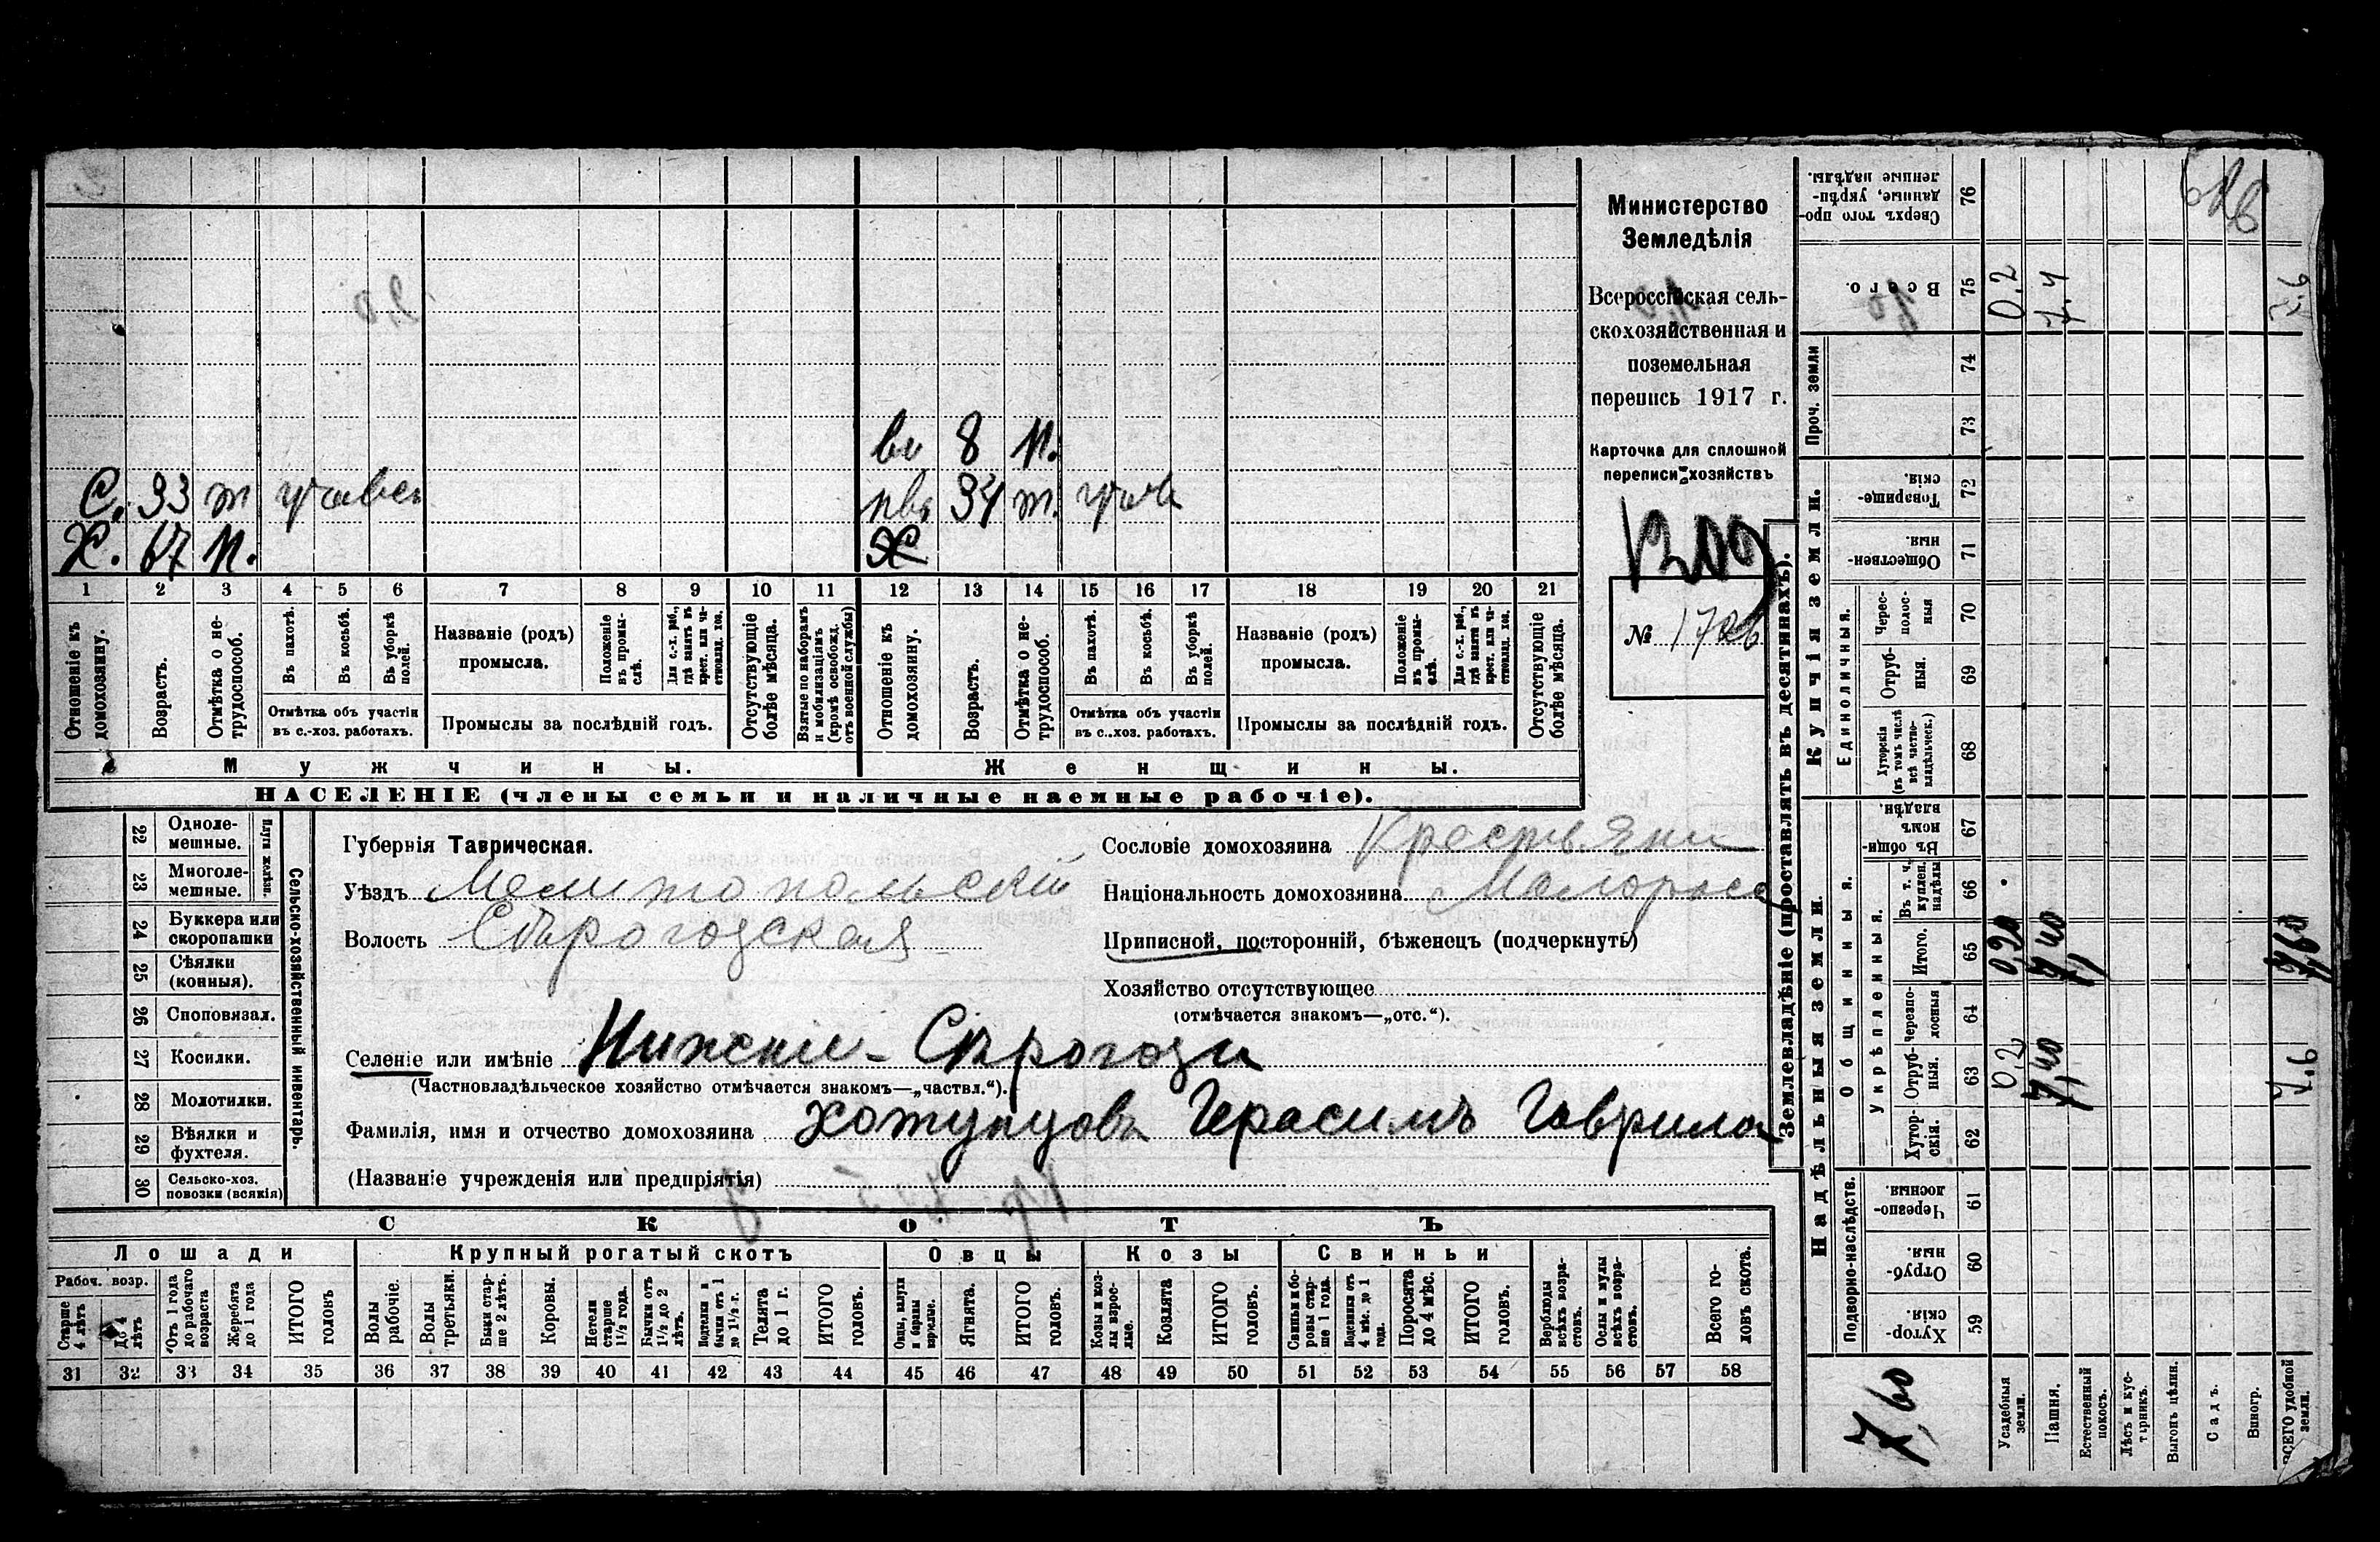 Министерство
Земледѣлія
Всероссійская сель-
скохозяйственная и
поземельная
перепись 1917 г.
Карточка для сплошной
переписи хозяйствъ
№ 1726
во 8 н.
С. 33 т участ
нев 34 т. уч
Х. 67 н.
Х
1 2 3 4 5 6 7 8 9 10 11 12 13 14 15 16 17 18 19 20 21
Отношеніе къ домохозяину.
Возрастъ.
Отмѣтка о не-трудоспособ.
Въ пахотѣ.
Въ косьбѣ.
Въ уборкѣ полей.
Отмѣтка объ участіи
въ с.-хоз. работахъ.
Названіе (родъ)
промысла.
Положеніе въ промы-слѣ.
Для с.-х. раб., гдѣ занятъ въ крест. или ча-стновлад. хоз.
Промыслы за послѣдній годъ.
Отсутствующіе болѣе мѣсяца.
Взятые по наборамъ и мобилизаціямъ (кромѣ освобожд. отъ военной службы)
Отношеніе къ домохозяину.
Возрастъ.
Отмѣтка о не-трудоспособ.
Въ пахотѣ.
Въ косьбѣ.
Въ уборкѣ полей.
Отмѣтка объ участіи
въ с.-хоз. работахъ.
Названіе (родъ)
промысла.
Положеніе въ промы-слѣ.
Для с.-х. раб., гдѣ занятъ въ крест. или ча-стновлад. хоз.
Промыслы за послѣдній годъ.
Отсутствующіе болѣе мѣсяца.
Мужчины.
Женщины.
НАСЕЛЕНІЕ (члены семьи и наличные наемные рабочіе).
22 Одноле-мешные.
23 Многоле-мешные.
Плуги желѣзн.
24 Буккера или скоропашки
25 Сѣялки (конныя).
26 Споповязал.
27 Косилки.
28 Молотилки.
29 Вѣялки и фухтеля.
30 Сельско-хоз. повозки (всякія)
Сельско-хозяйственный инвентарь.
Губернія Таврическая.
Уѣздъ Мелитопольскій
Волость Сѣрогозская
Сословіе домохозяина Крестьяни
Національность домохозяина Малоросс
Приписной, посторонній, бѣженецъ (подчеркнуть)
Хозяйство отсутствующее
(отмѣчается знакомъ—„отс.“).
Селеніе или имѣніе Нижніе-Сѣрогозы
(Частновладѣльческое хозяйство отмѣчается знакомъ—„частвл.“).
Фамилія, имя и отчество домохозяина Хотунцовъ Герасимъ Гаврило
(Названіе учрежденія или предпріятія)
СКОТЪ
Лошади
Крупный рогатый скотъ
Овцы
Козы
Свиньи
Рабоч. возр.
Старше 4 лѣтъ
До 4 лѣтъ
Отъ 1 года до рабочаго возраста
Жеребята до 1 года
ИТОГО головъ
Волы рабочіе.
Волы третьяки.
Быки стар-ше 2 лѣтъ.
Коровы.
Нетели старше 1½ года.
Бычки отъ 1½ до 2 лѣтъ.
Подтелки и бычки отъ 1 до 1½ г.
Телята до 1 г.
ИТОГО головъ.
Овцы, валухи и бараны взрослые.
Ягнята.
ИТОГО головъ.
Козы и коз-лы взрос-лые.
Козлята
ИТОГО головъ.
Свиньи и бо-ровы стар-ше 1 года.
Подсвинки отъ 4 мѣс. до 1 года.
Поросята до 4 мѣс.
ИТОГО головъ.
Верблюды всѣхъ возра-стовъ.
Ослы и мулы всѣхъ возра-стовъ.
Всего го-ловъ скота.
31 32 33 34 35 36 37 38 39 40 41 42 43 44 45 46 47 48 49 50 51 52 53 54 55 56 57 58
Землевладѣніе (проставлять въ десятинахъ).
Надѣльныя земли.
Купчія земли.
Проч. земли
Подворно-наслѣдств.
Общинныя.
Укрѣпленныя.
Единоличныя.
59 Хутор-скія.
60 Отруб-ныя.
61 Черезпо-лосныя.
62 Хутор-скія.
63 Отруб-ныя.
64 Черезпо-лосныя
65 Итого.
66 Въ т. ч. куплен. надѣлы
67 Въ общин-номъ владѣн.
68 Хуторскія (въ томъ числѣ всѣ частно-владѣльческ.)
69 Отруб-ныя.
70 Черес-полос-ныя
71 Обществен-ныя.
72 Товарище-скія.
73
74
75 Всего.
76 Сверхъ того про-данные, укрѣп-ленные надѣлы.
Усадебныя земли. 0,2 0,20 0.2
Пашня. 7,40 7,40 7.4
Естественный покосъ.
Лѣсъ и кус-тарникъ.
Выгонъ цѣлин.
Садъ.
Виногр.
ВСЕГО удобной земли. 7.6 7,60 7.6
7,60